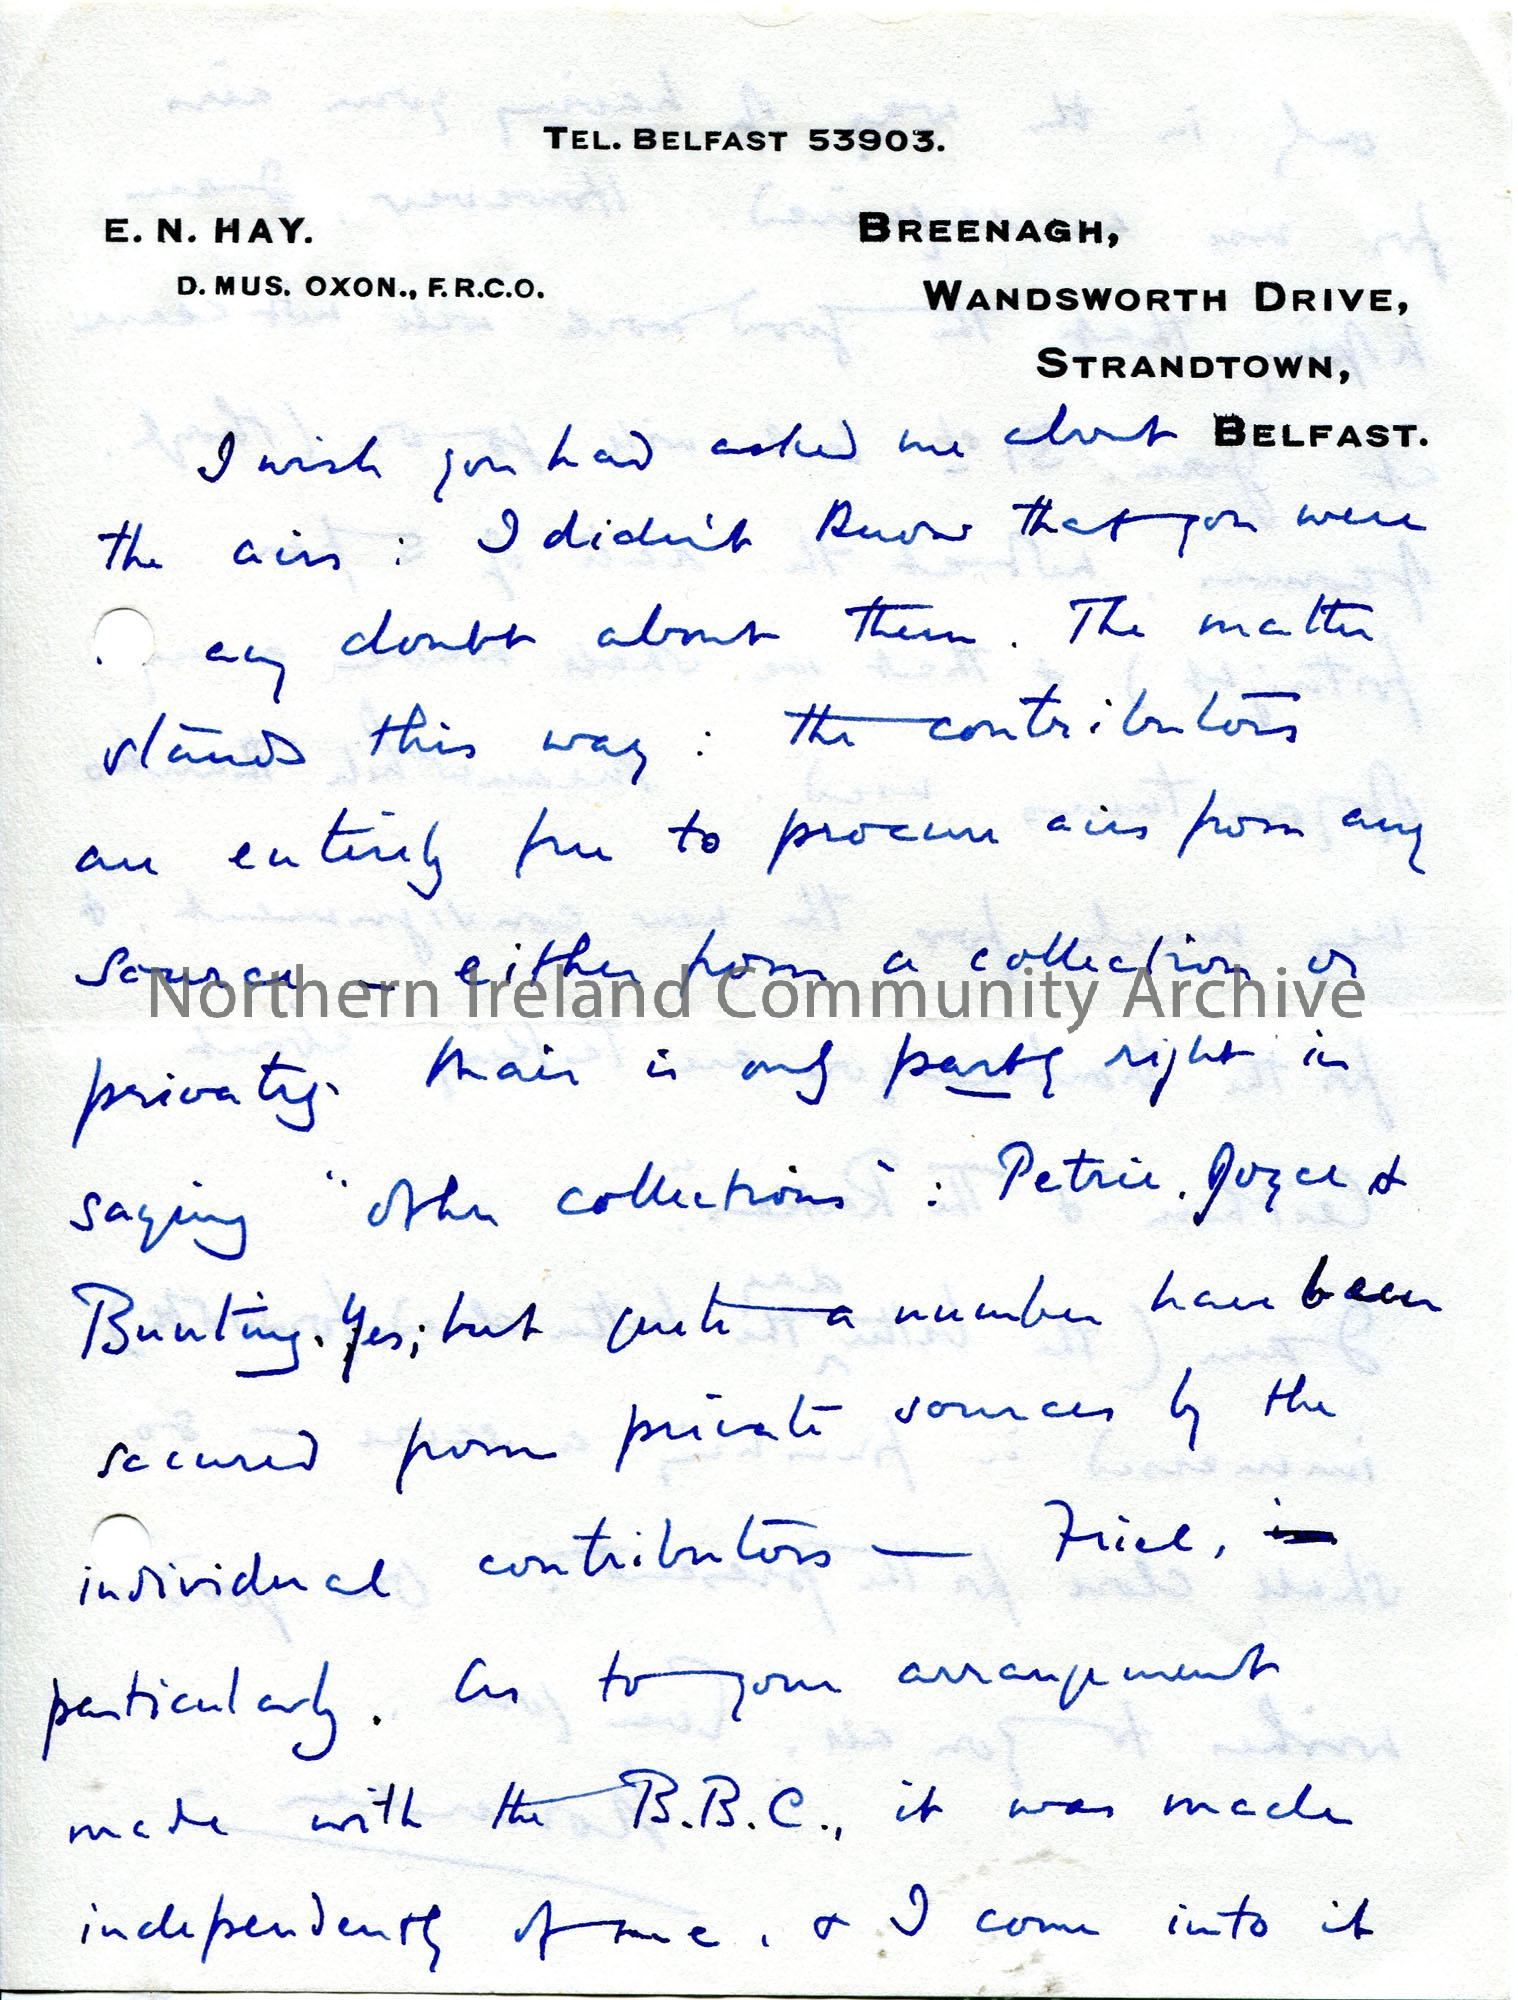 TEL. BELFAST 53903.
E. N. HAY.
D. MUS. OXON., F.R.C.O.
BREENAGH,
WANDSWORTH DRIVE,
STRANDTOWN,
BELFAST.
I wish you had asked me about
the airs : I didn't know that you were
any doubt about them. The matter
stands this way : the contributors
are entirely free to procure airs from any
source – either from a collection or
privately. Mair is only partly right in
saying "other collections" : Petrie, Joyce &
Bunting. Yes; but quite a number have been
secured from private sources by the
individual contributors — Friel,
particularly. As to your arrangement
made with the B.B.C., it was made
independently of me, & I come into it
Northern Ireland Community Archive